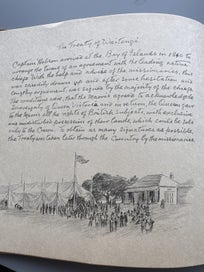 The Treaty of Waitangi
Captain Hobson arrived at the Bay of Islands in 1840 to
arrange the terms of an agreement with the leading native
chiefs. With the help and advice of the missionaries, this
was carefully drawn up and after some hesitation and
lengthy argument, was signed by the majority of the chiefs
The conditions were, that the Maoris agreed to acknowledge the
Sovereignty of Queen Victoria and in return, the Queen gave
to the Maoris all the rights of British subjects, with exclusive
and undisturbed possession of their lands, which could be sold
only to the Crown. To obtain as many signatures as possible,
the Treaty was taken later through the Country by the missionaries